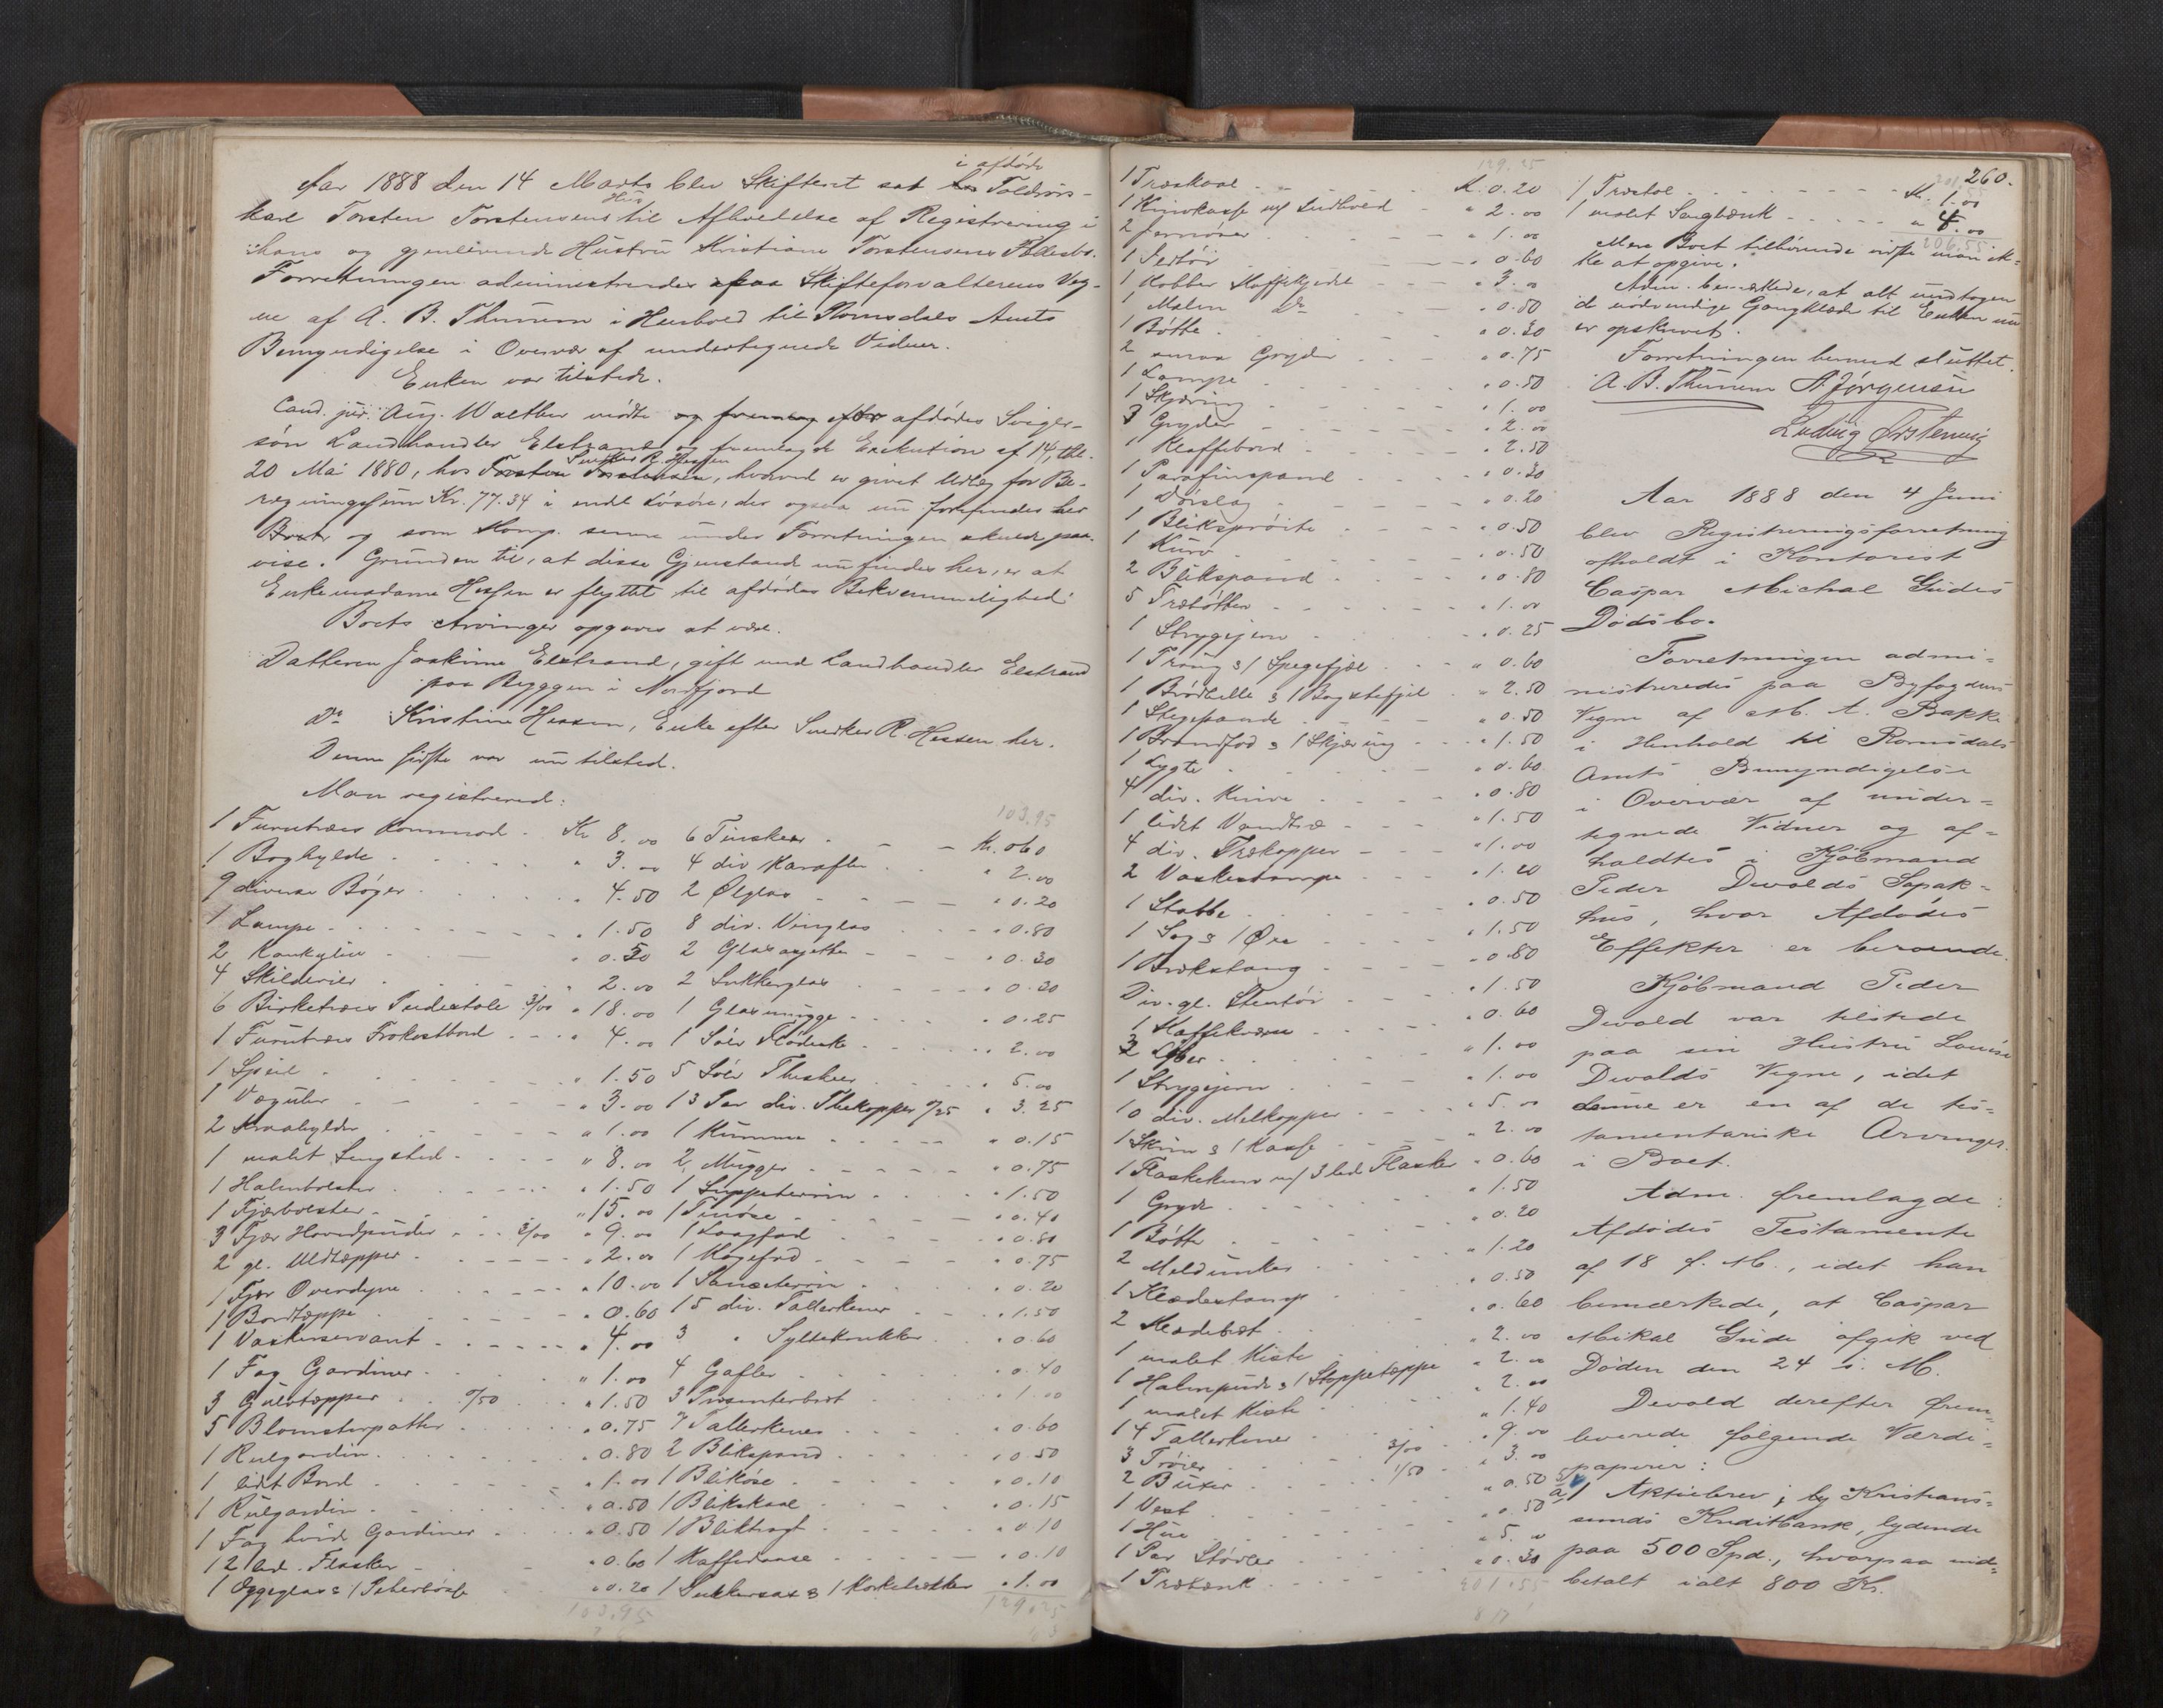 i afdøde
Aar 1888 den 14 Marts blev Skifteret sat hos Toldros-
karl Torsten Torstensens Hus til Afholdelse af Registrering i
hans og gjenlevende Hustru Kristiane Torstensens Fællesbo.
Forretningen administreredes paa Skifteforvalterens Veg-
ne af A. B. Thurem i Henhold til Romsdals Amts
Bemyndigelse i Overvær af undertegnede Vidner.
Enken var tilstede.
Cand. jur. Aug. Walther mødte og fremlag efter afdødes Sviger-
søn Landhandler Elstrand og fremlagde Exekution af 14, the.
20 Mai 1880, hos Torsten Torstensen Sverker R. Hessen, hvorved er givet Udlæg for Be-
regningssum Kr. 77.34 i endel Løsøre, der ogsaa nu forefindes her
Boets og som Komp. senere under Forretningen skulde paa-
vise. Grunden til, at disse Gjenstande nu findes her, er at
Enkemadame Hessen er flyttet til afdødes Bekvemmelighed.
Boets Arvinger opgaves at være.
Datteren Joakime Elstrand, gift med Landhandler Elstrand
paa Bryggen i Nordfjord
Do Kristine Hessen, Enke efter Sverker R. Hessen her.
Denne sidste var nu tilsted.
Man registrered:
1 Furutræes Kommode - Kr 8.00
1 Boghylde " 3.00
9 diverse Bøger " 4.50
1 Lampe " 1.50
2 Konkylier " 0.50
4 Skilderier " 2.00
6 Birketræes Pudestole 3/00 " 18.00
1 Furutræes Frokostbord " 4.00
1 Speil " 1.50
1 Væguhr " 3.00
2 Kraahylder " 1.00
1 malet Sengsted " 8.00
1 Halmbolster " 1.50
1 Fjærbolster " 15.00
3 Fjær Hovedpuder 3/00 " 9.00
2 gl. Uldtæpper " 2.00
1 Fjær Overdyne " 10.00
1 Bordtæppe " 0.60
1 Vaskeservant " 4.00
1 Fag Gardiner " 1.00
3 Gulvtæpper 0/50 " 1.50
5 Blomsterpotter " 0.75
1 Rulgardin " 0.80
1 lidet Bord " 1.00
1 Rulgardin " 0.50
1 Fag hvide Gardiner " 0.50
12 led. Flasker " 0.60
1 Æggeglas & 1 Peberbøsse " 0.20
103.95
103.95
6 Tinskeer Kr. 0.60
4 div Karafler " 2.00
2 Ølglas " 0.20
8 div. Vinglas " 0.80
2 Glasasjetter " 0.30
2 Sukkerglas " 0.20
1 Glasmugge " 0.25
1 Sølv Flødeske " 2.00
5 Sølv Theskeer " 5.00
13 Par div. Thekopper 0/25 " 3.25
1 Kumme " 0.15
2 Mugger " 0.75
1 Suppeterrin " 1.50
1 Tinøse " 0.40
1 Langfad " 0.80
1 Kagefad " 0.75
1 Sauseterrin " 0.20
15 div. Tallerkener " 1.50
3 " Syltekrukker " 0.60
4 Gafler " 0.40
3 Presenterbret " 1.00
7 Tallerkener " 0.60
2 Blikspand " 0.50
1 Blikøse " 0.10
1 Blikskaal " 0.15
1 Bliktragt " 0.10
1 Kaffedaase " 0.10
1 Sukkersax & 1 Korketrækker " 1.00
129.25
129.25
1 Træskaal Kr. 0.20
1 Knivkasse m/ Indhold " 2.00
2 Jerngryder " 1.00
1 Fedtør " 0.60
1 Kobber Kaffekjedel " 3.00
1 Malm Do " 0.80
1 Bøtte " 0.30
2 smaa Gryder " 0.75
1 Lampe " 0.50
1 Skjæring " 1.00
3 Gryder " 2.00
1 Klaffebord " 2.50
1 Parafinspand " 0.30
1 Dørslag " 0.20
1 Bliksprøite " 0.50
1 Kurv " 0.50
2 Blikspand " 0.80
5 Træbøtter " 1.00
1 Strygejern " 0.25
1 Traug & 1 Spegefjæl " 0.60
1 Brødhelle & 1 Bagstefjel " 2.50
1 Stegepande " 0.50
1 Brandfod & 1 Skjæring " 1.50
1 Lygte " 0.60
4 div. Knive " 0.80
1 lidet Vandtræ " 1.50
4 div. Trækopper " 1.00
2 Vaskestampe " 1.20
1 Stabbe " 0.50
1 Sag & 1 Øxe " 1.50
1 Brækstang " 0.80
Div. gl. Stentøi " 1.50
1 Kaffekværn " 0.60
3 Øser " 1.00
1 Strygejern " 1.00
10 div. Melkopper " 5.00
1 Skrin & 1 Kasse " 2.00
1 Flaskekurv m/ 3 led. Flasker " 0.60
1 Gryde " 1.50
1 Bøtte " 0.20
2 Meldunker " 1.20
1 Klædestamp " 0.50
2 Klædebræt " 0.60
1 malet Kiste " 2.00
1 Halmpude & 1 Stoppetæppe " 2.00
1 malet Kiste " 2.00
14 Tallerkener " 1.40
3 Trøier 3/00 " 9.00
2 Buxer 1/50 " 3.00
1 Vest " 0.50
1 Hue " 50
1 Par Støvler " 5.00
1 Træbænk " 0.30
201.55
260.
201.55
1 Træstol Kr. 1.00
1 malet Sengbænk " 4.00
206.55
Mere Boet tilhørende vidste man ik-
ke at opgive.
Adm. bemærkede, at alt undtagen
de nødvendige Gangklæder til Enken nu
er opskrevet.
Forretningen hermed sluttet.
A. B. Thurem A. Jørgensen
Ludvig Torstensen
Aar 1888 den 4 Juni
blev Registreringsforretning
afholdt i Kontorist
Caspar Michal Gudes
Dødsbo.
Forretningen admi-
nistreredes paa Byfogdens
Vegne af M. A. Bakke
i Henhold til Romsdals
Amts Bemyndigelse
i Overvær af under-
tegnede Vidner og af-
holdtes i Kjøbmand
Peder Devolds Søpak-
hus, hvor Afdødes
Effekter er beroende.
Kjøbmand Peder
Devold var tilstede
paa sin Hustru Louise
Devolds Vegne, idet
denne er en af de tes-
tamentariske Arvinger
i Boet.
Adm. fremlagde:
Afdødes Testamente
af 18 f. M., idet han
bemærkede, at Caspar
Mikal Gude afgik ved
Døden den 24 s. M.
Devold derefter frem-
leverede følgende Værdi-
papirer:
a, 1 Aktiebrev i by Kristians-
sunds Kreditbank, lydende
paa 500 Spd., hvorpaa ind-
betalt ialt 800 Kr.